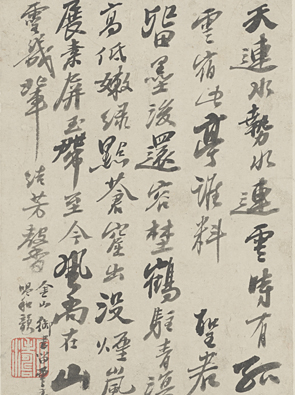 天連水勢水連雲時有孤
雲宿此亭誰料 聖君
留墨後還容野鶴駐青溟
高低嫩綠點蒼窪出沒煙嵐
展素屏玉帶至今風雨在山
靈幾輩結芳馨
金山
恭和韻